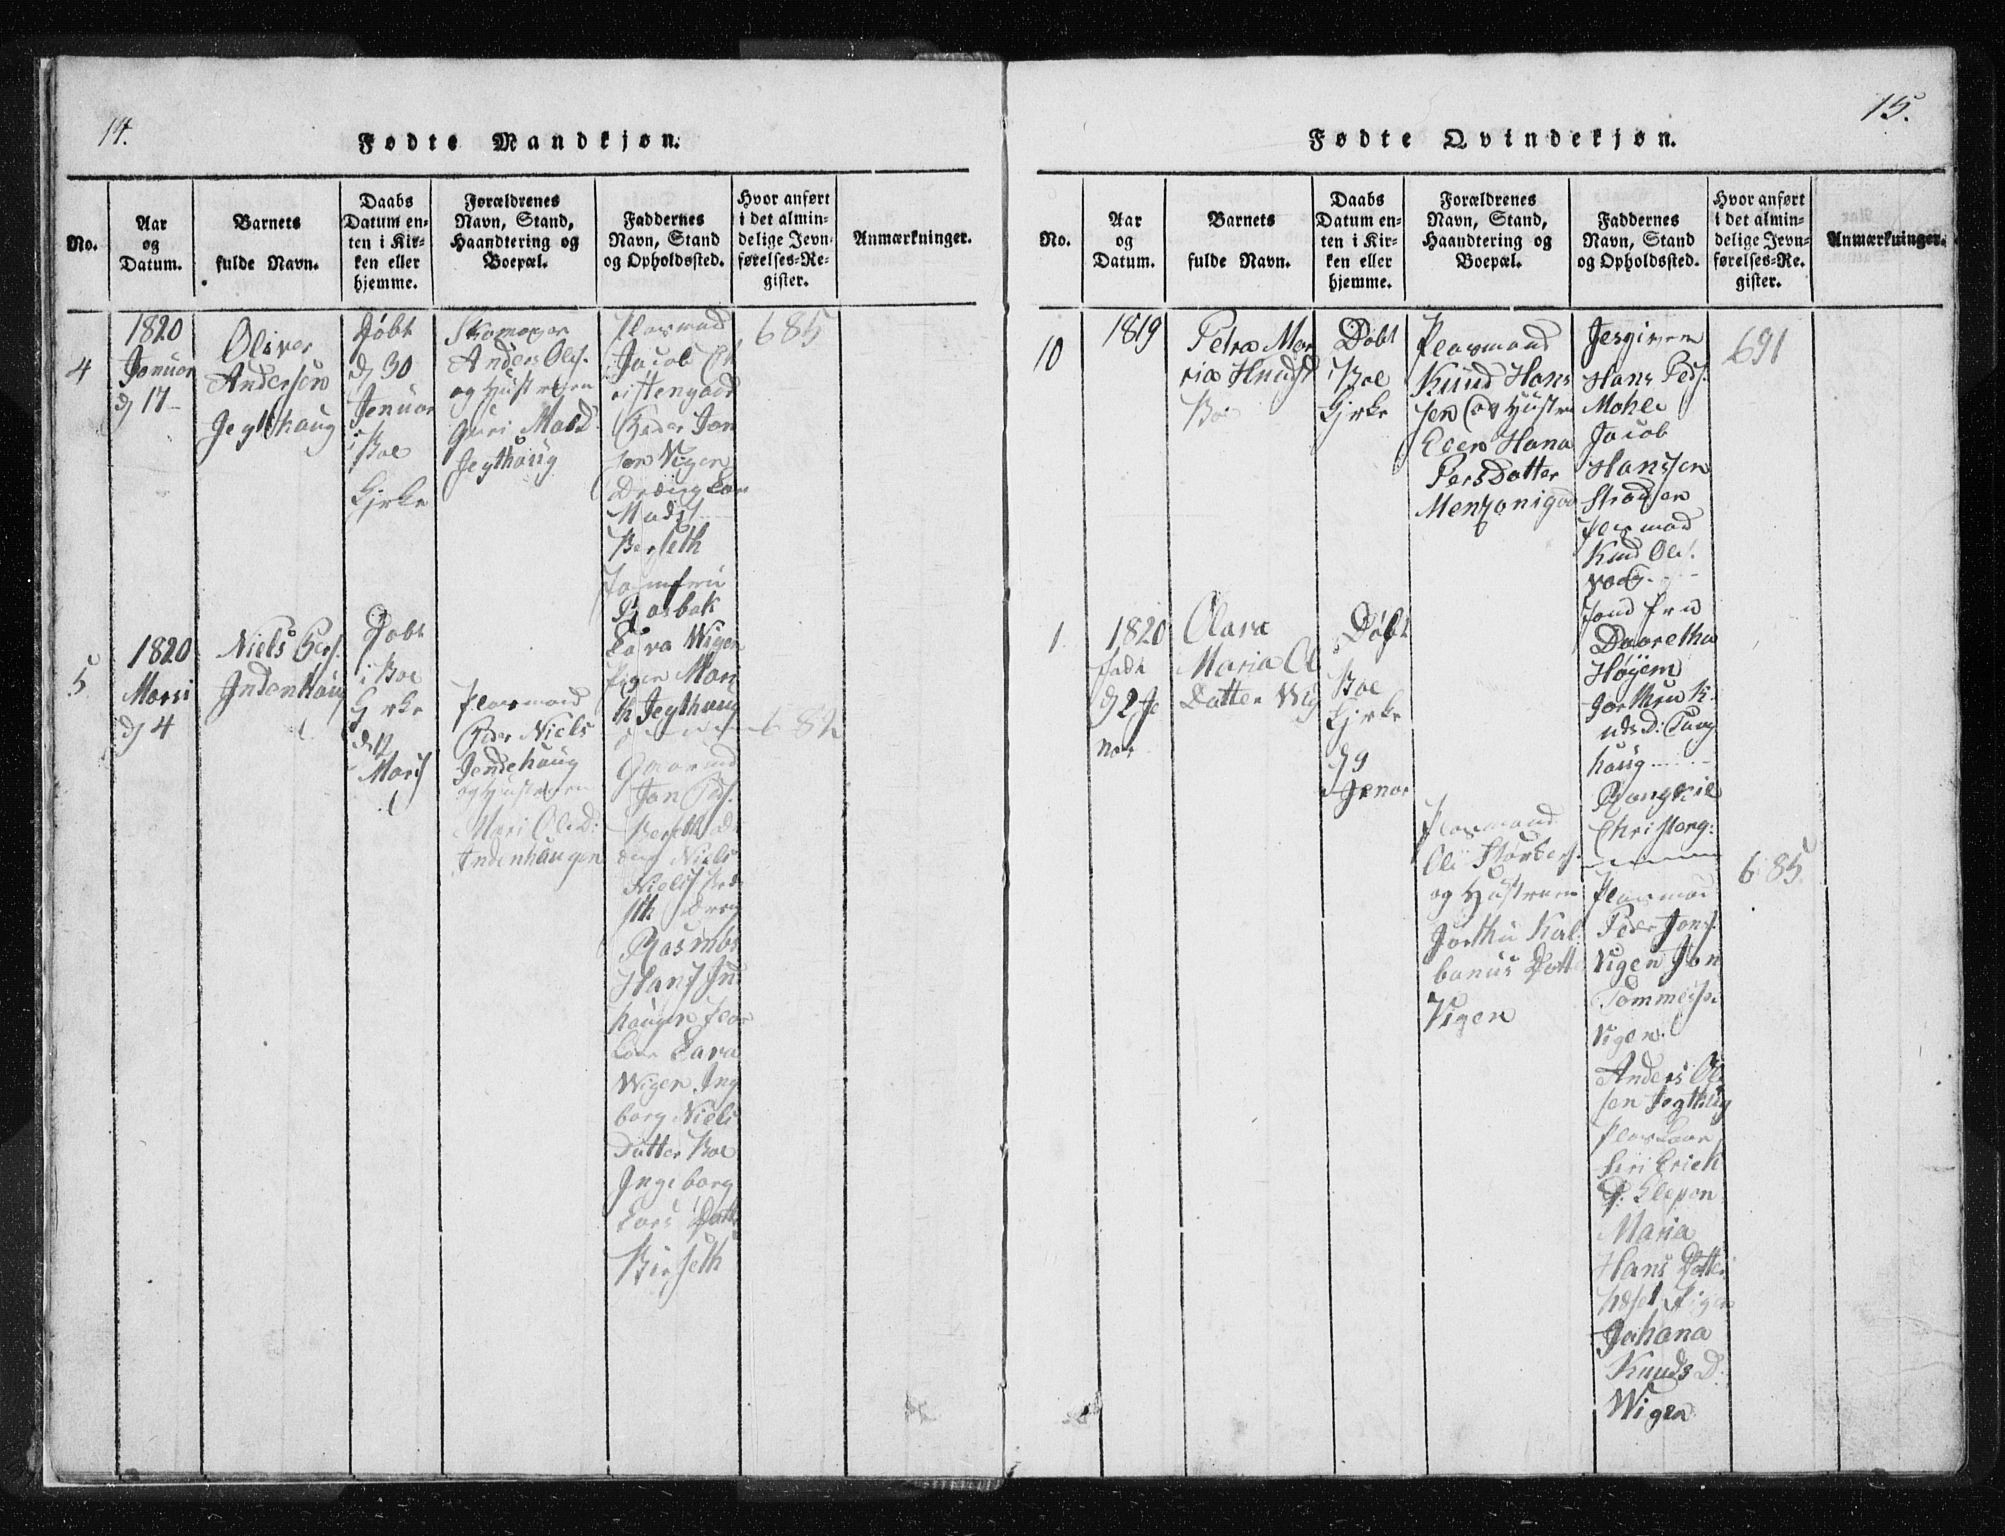 14.
Fødte Mandkjøn.
No.
Aar
og
Datum.
Barnets
fulde Navn.
Daabs
Datum en-
ten i Kir-
ken eller
hjemme.
Forældrenes
Navn, Stand,
Haandtering og
Boepæl.
Faddernes
Navn, Stand
og Opholdssted.
Hvor anført
i det almin-
delige Jevn-
førelses-Re-
gister.
Anmærkninger.
4
1820
Januar
d 17
Oliver
Andersen
Jegthaug
Døbt
d 30
Januar
i Boe
Kjrke
Anders Ols.
og Hustruen
Guri Mats D
Jegthaug
Plasmand
Jacob Ch
ristengaard
Peder Jon
sen Vigen
Dræng Lar
Mads
Berseth
Jomfru
Rosbak
Lava Wigen
Pigen Mari
th Jegthaug
685
5
1820
Marsi
d 4
Niels Pers.
Indenhaug
Døbt
i Boe
Kjrke
d 12
Mars
Plasmand
Peder Niels
Jendehaug
og Hustruen
Mari Ole D:
Indenhaugen
Gaarmd
Jon Peds.
Berseth D
eng Niels
Niels Ber
sth Dreng
Rasmus
Hans In
haugen
Lava
Wigen Ing
borg Niels
Datter Boe
Ingeborg
Lars Datt
Berseth
682
15.
Fødte Qvindekjøn.
No.
Aar
og
Datum.
Barnets
fulde Navn.
Daabs
Datum en-
ten i Kir-
ken eller
hjemme.
Forældrenes
Navn, Stand,
Haandtering og
Boepæl.
Faddernes
Navn, Stand
og Opholdssted.
Hvor anført
i det almin-
delige Jevn-
førelses-Re-
gister.
Anmærkninger.
10
1819
Petra Mar
ria Knuds
Boe
Døbt
i Boe
Kjrke
Plasmand
Knud Hans
sen og Hustru
Elen Hana
Pers Datter
Hans Peds.
Mohle
Jacob
Hanssen
Plasmad
Knud Ols.
Daaretha
Høyem
Jorthru K
uds D: Tang
haug
Rangkil
691
1
1820
født
d 2 Ja
nar
Olava
Maria Ol
Datter Wig
Døbt
Boe
Kjrke
d 9
Jenar
Plasmand
Ole
og Hustruen
Jorthu Kal
banus Datt
Vigen
Plasmad
Peder Jons.
Vigen Jon
Tommes.
Vigen.
Anders Ol
sen Jegthaug
Siri Erich
D: Elepen
Maria
Hans Datter
Johana
Knuds D:
Wigen
685